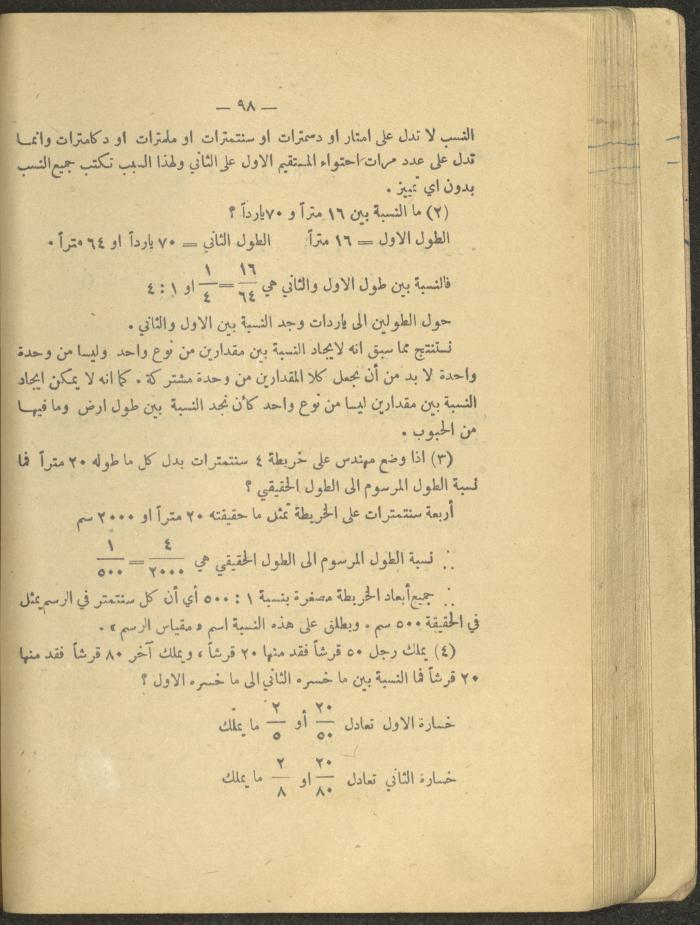 — ٩٨ —
النسب لا تدل على امتار او دسمترات او سنتمترات او ملمترات او دكامترات وانما
تدل على عدد مرات احتواء المستقيم الاول على الثاني ولهذا السبب تكتب جميع النسب
بدون اي تمييز .
(٢) ما النسبة بين ١٦ متراً و ٧٠ يارداً ؟
الطول الاول = ١٦ متراً الطول الثاني = ٧٠ يارداً او ٦٤ متراً .
فالنسبة بين طول الاول والثاني هي ١٦/٦٤ = ١/٤ او ١ : ٤
حول الطولين الى ياردات وجد النسبة بين الاول والثاني .
نستنتج مما سبق انه لايجاد النسبة بين مقدارين من نوع واحد وليسا من وحدة
واحدة لا بد من أن نجعل كلا المقدارين من وحدة مشتركة . كما انه لا يمكن ايجاد
النسبة بين مقدارين ليسا من نوع واحد كأن نجد النسبة بين طول ارض وما فيها
من الحبوب .
(٣) اذا وضع مهندس على خريطة ٤ سنتمترات بدل كل ما طوله ٢٠ متراً فما
نسبة الطول المرسوم الى الطول الحقيقي ؟
أربعة سنتمترات على الخريطة تمثل ما حقيقته ٢٠ متراً او ٢٠٠٠ سم
∴ نسبة الطول المرسوم الى الطول الحقيقي هي ٤/٢٠٠٠ = ١/٥٠٠
∴ جميع أبعاد الخريطة مصغرة بنسبة ١ : ٥٠٠ أي أن كل سنتمتر في الرسم يمثل
في الحقيقة ٥٠٠ سم . ويطلق على هذه النسبة اسم « مقياس الرسم » .
(٤) يملك رجل ٥٠ قرشاً فقد منها ٢٠ قرشاً ، ويملك آخر ٨٠ قرشاً فقد منها
٢٠ قرشاً فما النسبة بين ما خسره الثاني الى ما خسره الاول ؟
خسارة الاول تعادل ٢٠/٥٠ أو ٢/٥ ما يملك
خسارة الثاني تعادل ٢٠/٨٠ او ٢/٨ ما يملك